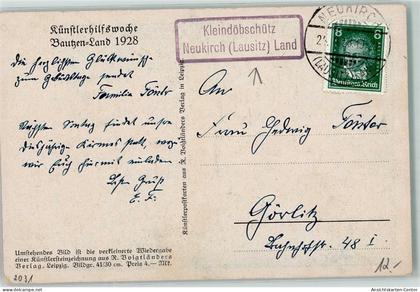 Künstlerhilfswoche
Bautzen-Land 1928
Die herzlichsten Glückwünsche
zum Geburtstage sendet
Familie Förster
Nächsten Sonntag findet unsere
diesjährige Kirmes statt, wozu
wir Euch hiermit einladen
Besten Gruß
E. F.
Umstehendes Bild ist die verkleinerte Wiedergabe
einer Künstlersteinzeichnung aus R. Voigtländers
Verlag, Leipzig. Bildgr. 41/30 cm. Preis 4.— Mk.
2031
Künstlerpostkarten aus R. Voigtländers Verlag in Leipzig
Kleindöbschütz
Neukirch (Lausitz) Land
NEUKIRCH
8 8
Deutsches Reich
An
Frau Hedwig Förster
Görlitz
Bahnhofst. 48 I
12.-